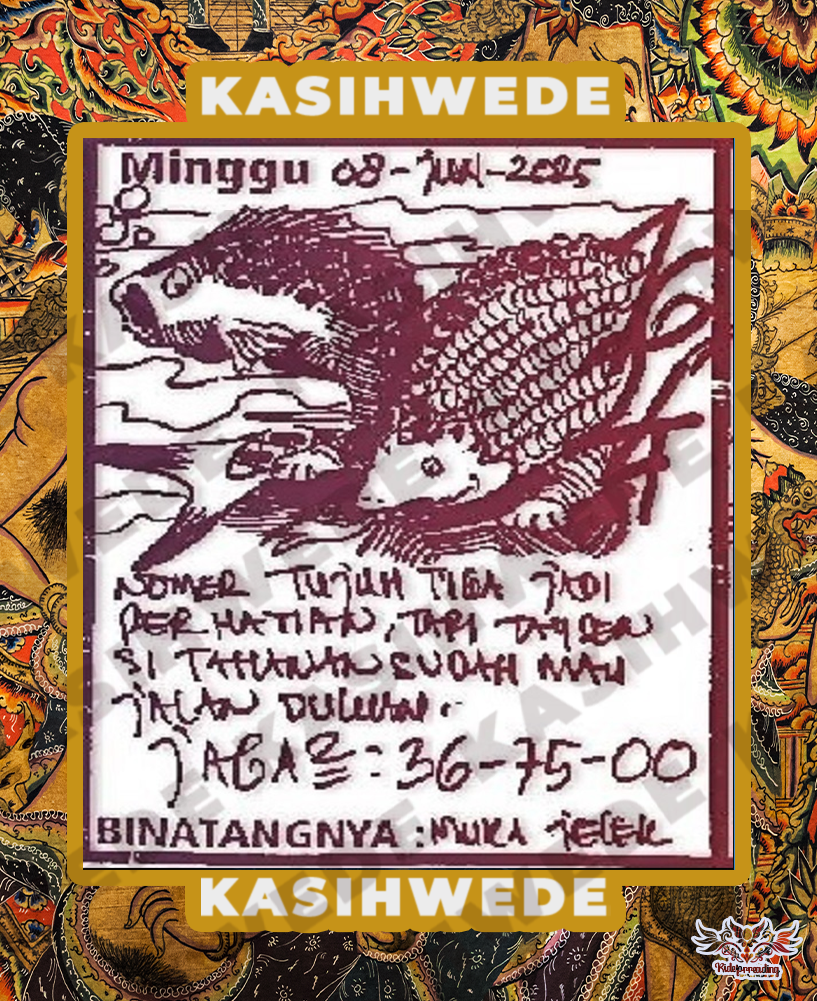 KASIHWEDE
Minggu 08-JUN-2025
NOMER TUJUH TIGA JADI
PERHATIAN, TAPI
SI TAHANAN SUDAH MAU
JALAN DULUAN.
JAGA2 : 36-75-00
BINATANGNYA : MUKA JELEK
KASIHWEDE